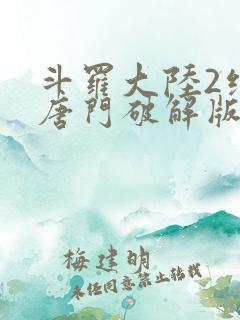 斗羅大陸2
唐門破解版
梅建明
未经同意禁止转载